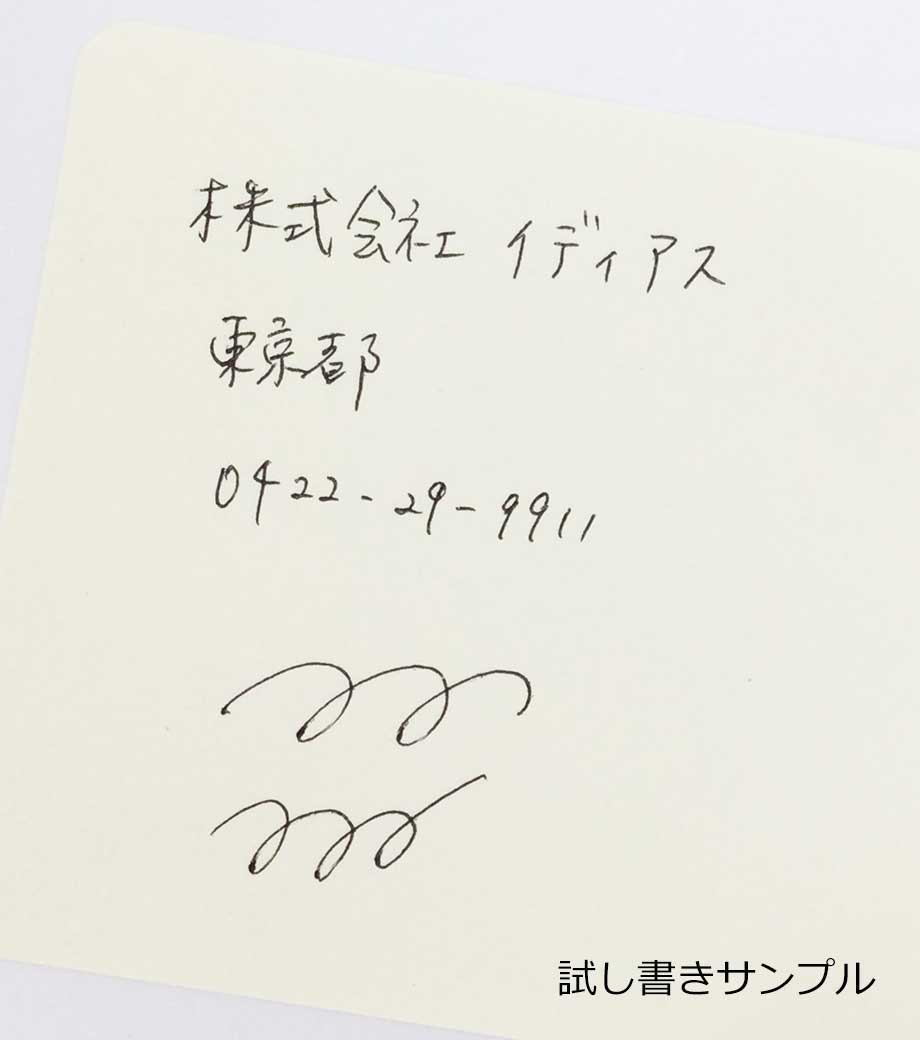 株式会社 イディアス
東京都
0422-29-9911
試し書きサンプル